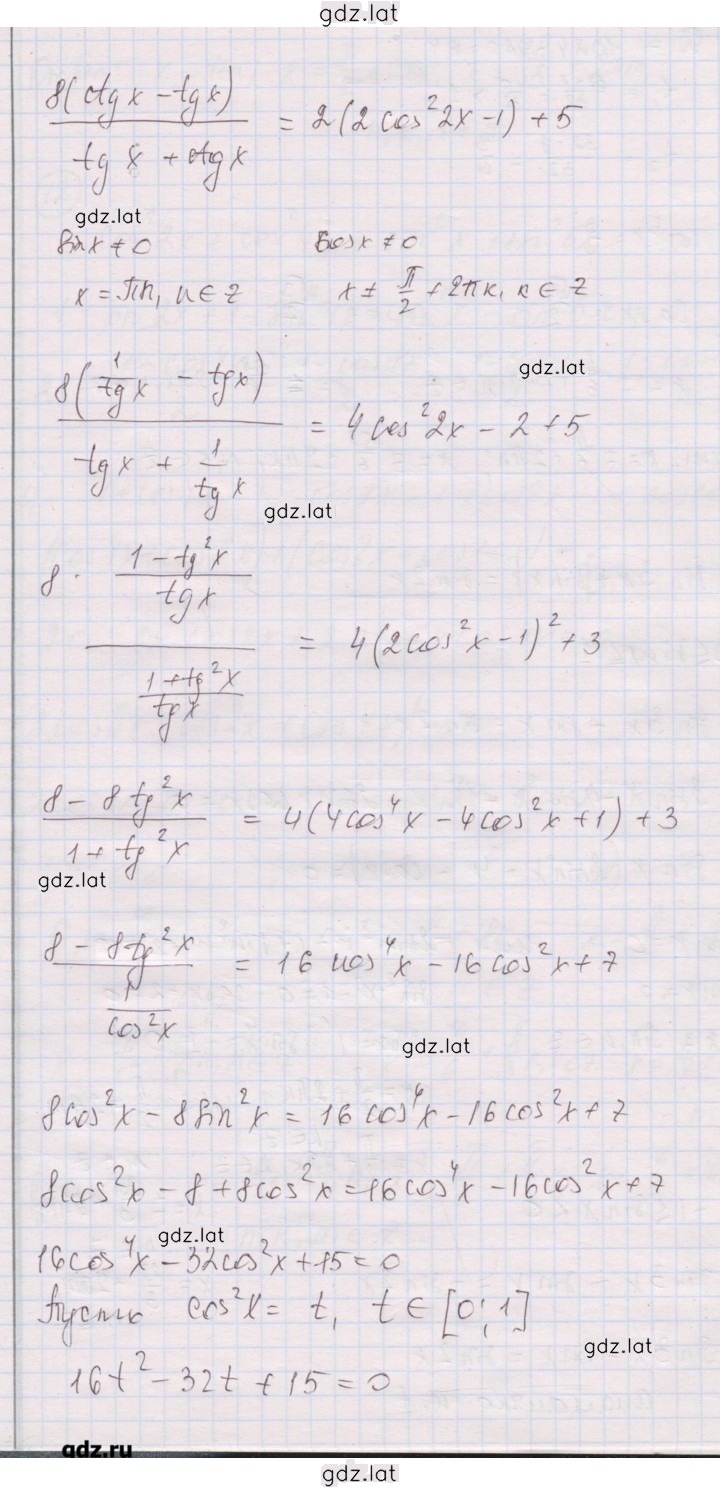 gdz.lat
8(ctg x - tg x) / (tg x + ctg x) = 2(2cos²2x - 1) + 5
gdz.lat
sin x ≠ 0 cos x ≠ 0
x = πn, n ∈ Z x ≠ π/2 + 2πk, k ∈ Z
gdz.lat
8(1/tg x - tg x) / (tg x + 1/tg x) = 4cos²2x - 2 + 5
gdz.lat
8 · ((1 - tg²x)/tg x) / ((1 + tg²x)/tg x) = 4(2cos²x - 1)² + 3
(8 - 8tg²x) / (1 + tg²x) = 4(4cos⁴x - 4cos²x + 1) + 3
gdz.lat
(8 - 8tg²x) / (1/cos²x) = 16cos⁴x - 16cos²x + 7
gdz.lat
8cos²x - 8sin²x = 16cos⁴x - 16cos²x + 7
8cos²x - 8 + 8cos²x = 16cos⁴x - 16cos²x + 7
gdz.lat
16cos⁴x - 32cos²x + 15 = 0
Пусть cos²x = t, t ∈ [0; 1]
gdz.lat
16t² - 32t + 15 = 0
gdz.ru
gdz.lat